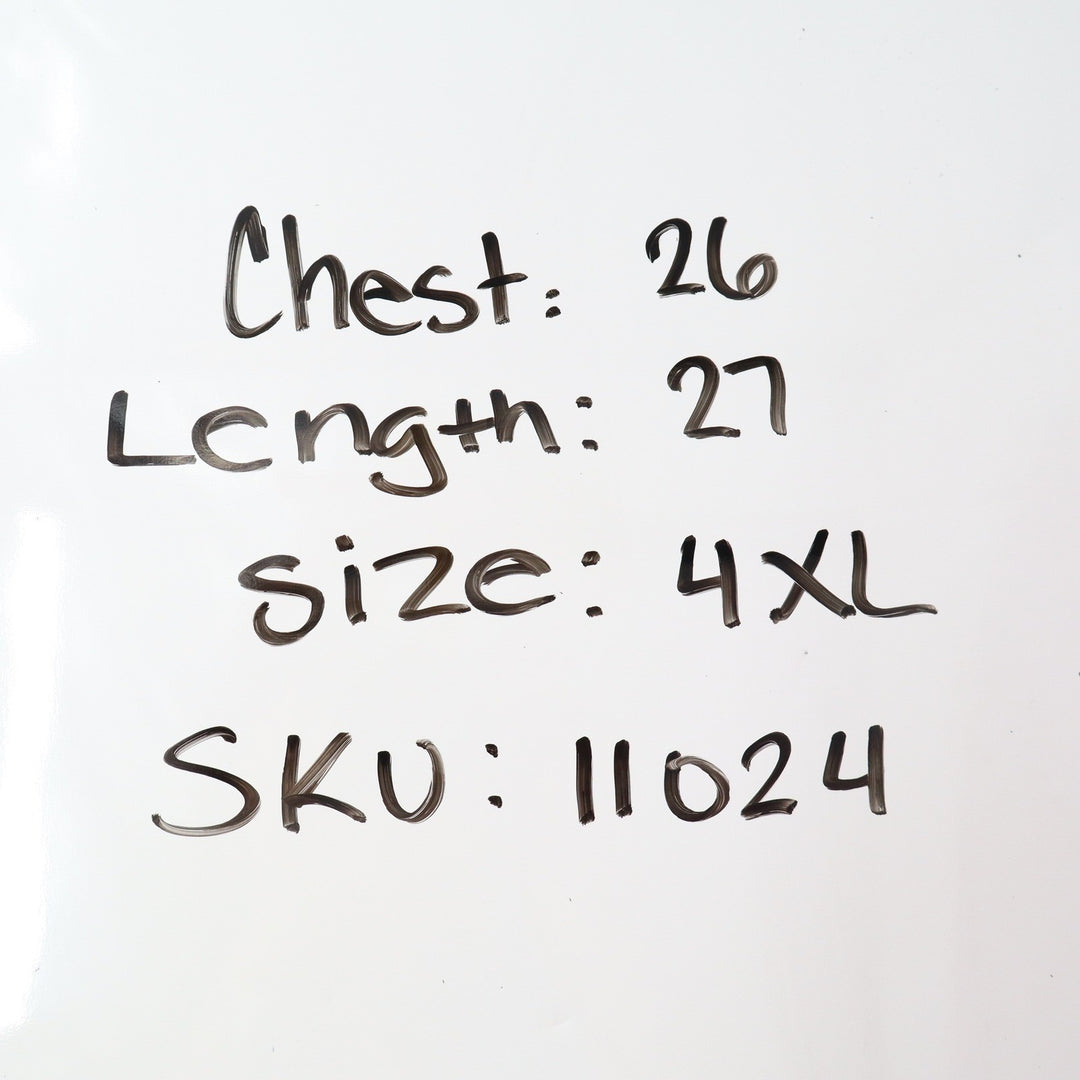 Chest: 26
Length: 27
Size: 4XL
SKU: 11024